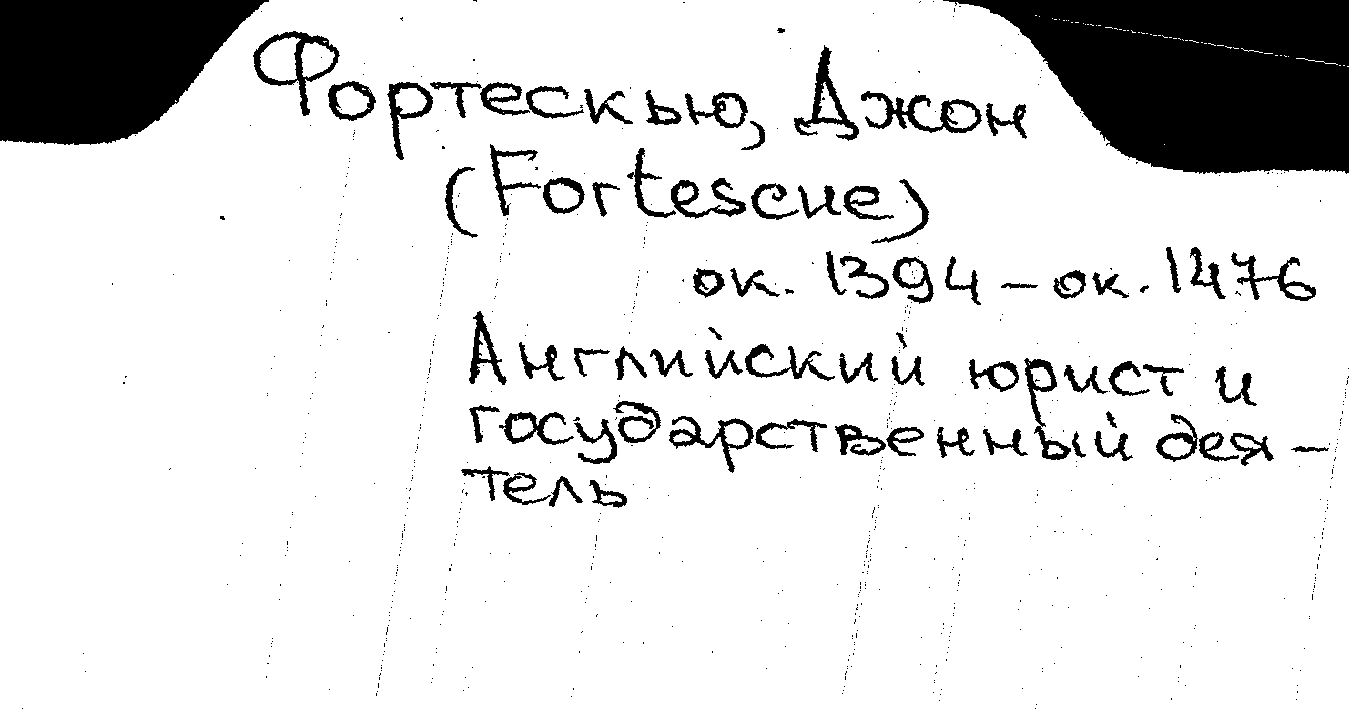 Фортескью, Джон
(Fortescue)
ок. 1394 – ок. 1476
Английский юрист и
государственный дея-
тель